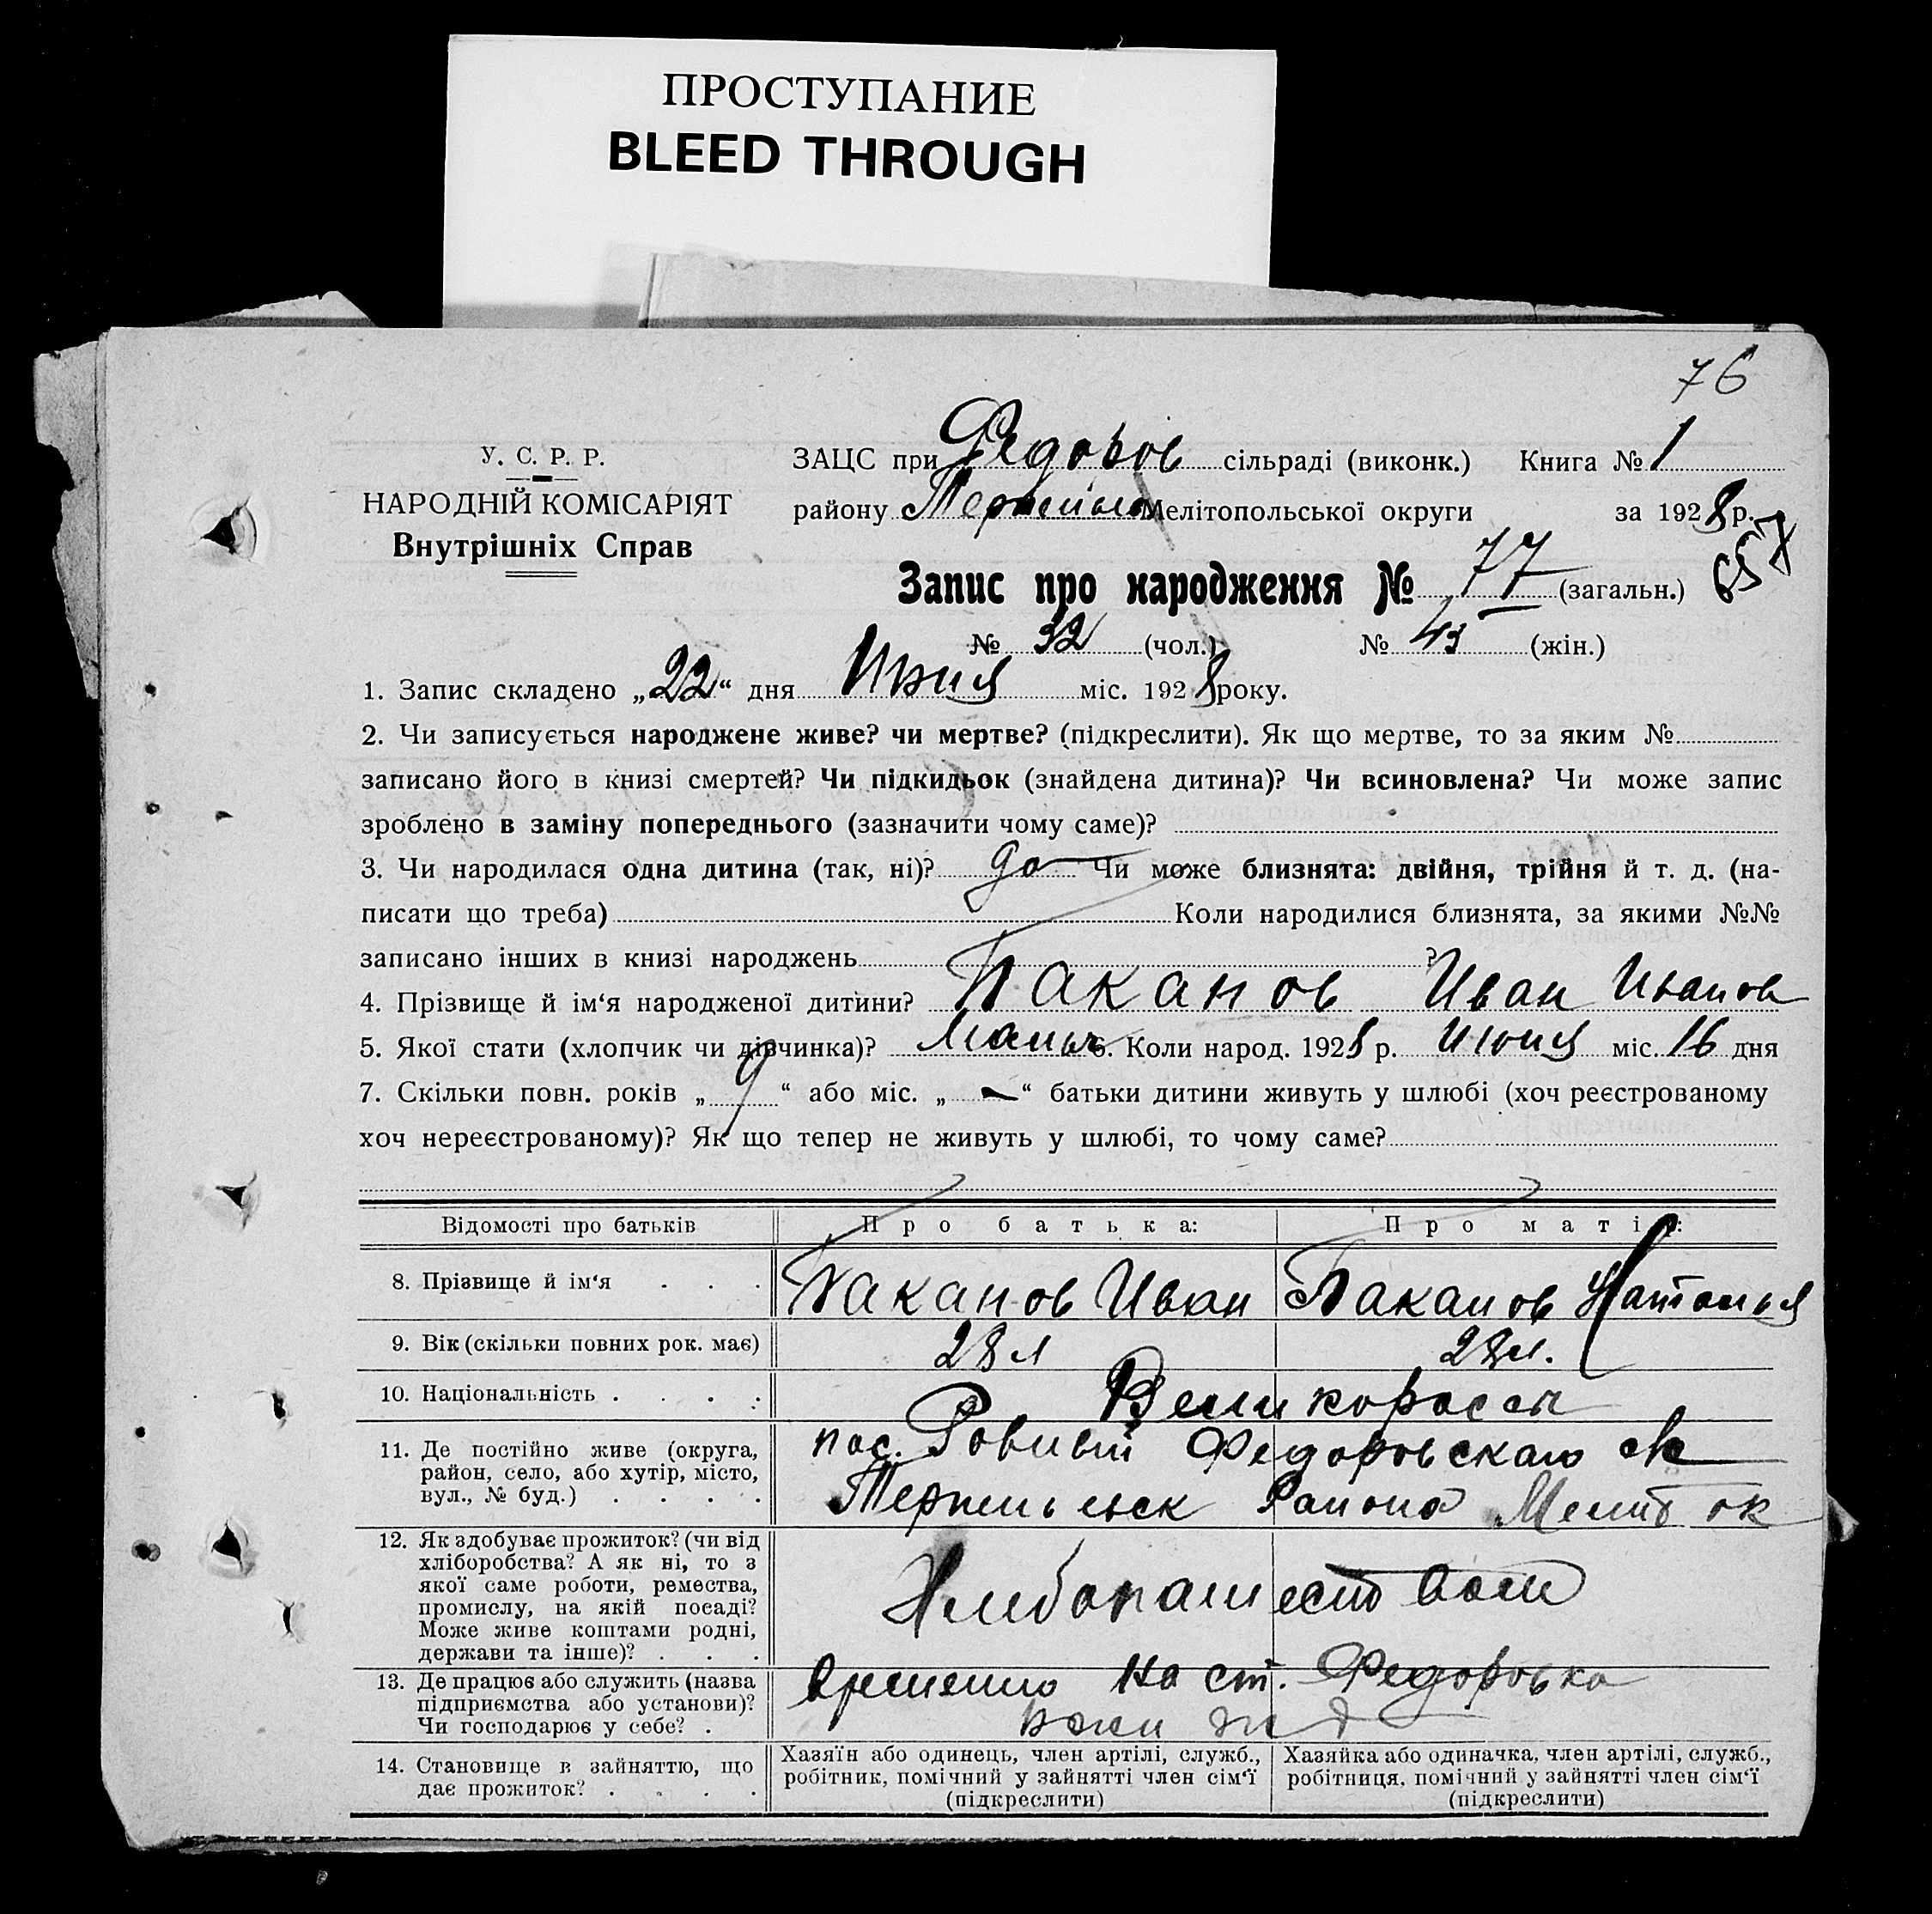 ПРОСТУПАНИЕ
BLEED THROUGH
76
У. С. Р. Р.
НАРОДНІЙ КОМІСАРІЯТ
Внутрішніх Справ
ЗАЦС при Федоров сільраді (виконк.) Книга № 1
району Мелітопольської округи за 1928 р.
657
Запис про народження № 77 (загальн.)
№ 32 (чол.) № 45 (жін.)
1. Запис складено „22“ дня Июня міс. 1928 року.
2. Чи записується народжене живе? чи мертве? (підкреслити). Як що мертве, то за яким №
записано його в книзі смертей? Чи підкидьок (знайдена дитина)? Чи всиновлена? Чи може запис
зроблено в заміну попереднього (зазначити чому саме)?
3. Чи народилася одна дитина (так, ні)? да Чи може близнята: двійня, трійня й т. д. (на-
писати що треба) Коли народилися близнята, за якими №№
записано інших в книзі народжень ?
4. Прізвище й ім‘я народженої дитини? Баканов Иван Иванов
5. Якої стати (хлопчик чи дівчинка)? Мальч 6. Коли народ. 1928 р. Июня міс. 16 дня
7. Скільки повн. років „9“ або міс. „—“ батьки дитини живуть у шлюбі (хоч реєстрованому
хоч нереєстрованому)? Як що тепер не живуть у шлюбі, то чому саме?
Відомості про батьків
Про батька:
Про матір:
8. Прізвище й ім‘я . . .
Баканов Иван
Баканов Наталья
9. Вік (скільки повних рок. має)
28 л
28 л.
10. Національність . . . .
Великороссы
11. Де постійно живе (округа,
район, село, або хутір, місто,
вул., № буд.) . . . .
пос. Федоровского с/с
Района Мелит ок
12. Як здобуває прожиток? (чи від
хліборобства? А як ні, то з
якої саме роботи, ремества,
промислу, на якій посаді?
Може живе коштами родні,
держави та інше)? . . .
Хлибопашеством
13. Де працює або служить (назва
підприємства або установи)?
Чи господарює у себе? .
временно на ст. Федоровка
14. Становище в зайняттю, що
дає прожиток? . . . .
Хазяїн або одинець, член артілі, служб.,
робітник, помічний у зайнятті член сім‘ї
(підкреслити)
Хазяйка або одиначка, член артілі, служб.,
робітниця, помічний у зайнятті член сім‘ї
(підкреслити)